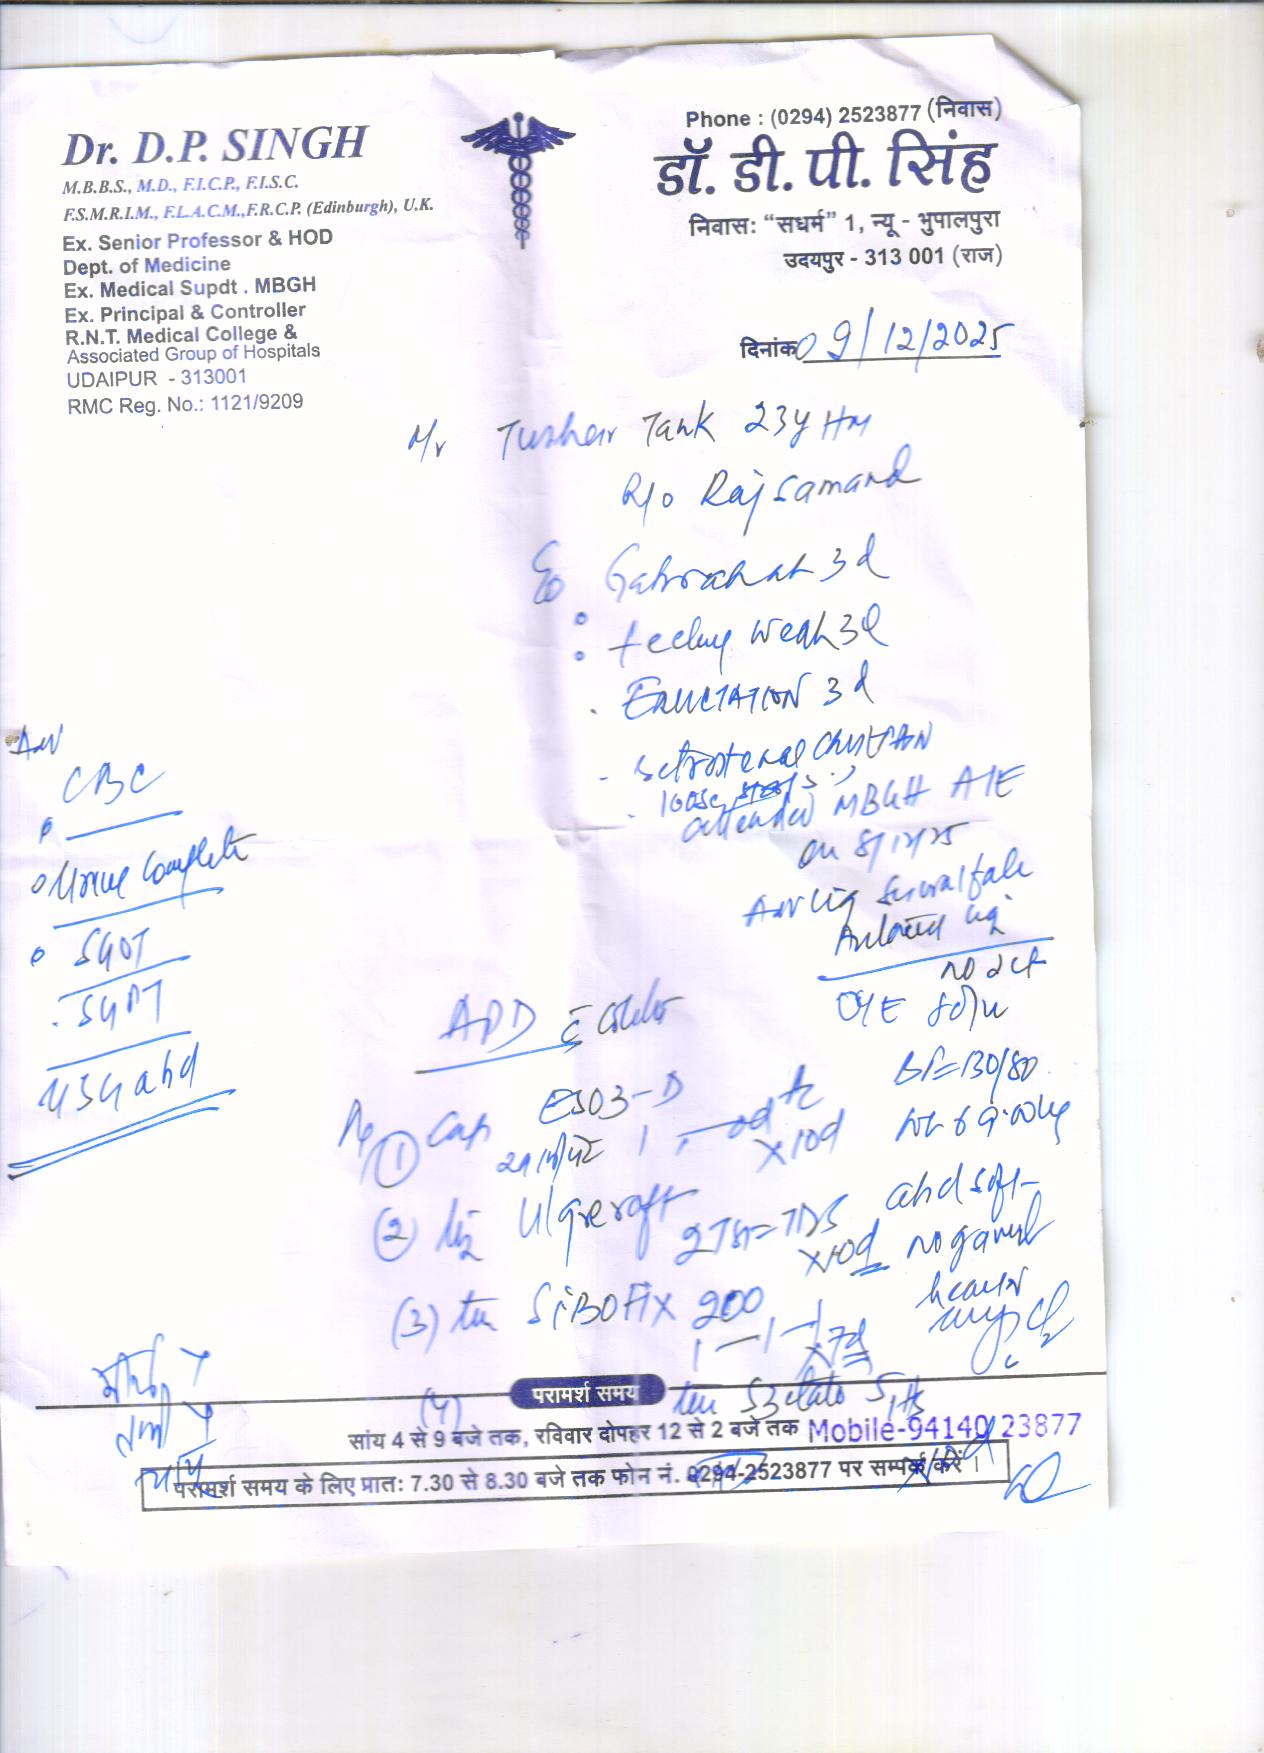 Dr. D.P. SINGH
M.B.B.S., M.D., F.I.C.P., F.I.S.C.
F.S.M.R.I.M., F.I.A.C.M.,F.R.C.P. (Edinburgh), U.K.
Ex. Senior Professor & HOD
Dept. of Medicine
Ex. Medical Supdt . MBGH
Ex. Principal & Controller
R.N.T. Medical College &
Associated Group of Hospitals
UDAIPUR - 313001
RMC Reg. No.: 1121/9209
Phone : (0294) 2523877 (निवास)
डॉ. डी. पी. सिंह
निवास: “सधर्म” 1, न्यू - भुपालपुरा
उदयपुर - 313 001 (राज)
दिनांक 09/12/2025
Mr Tushar Tank 23y HM
R/o Rajsamand
C/o Gabrahat 3d
feeling weak 3d
ERUCTATION 3d
retrosternal chest pain
loose stools
attended MBGH A/E
on 8/12/25
Adv
CBC
Urine Complete
SGOT
SGPT
USG abd
no
O/E
BP=130/80
wt 69.00kg
abd soft
no
APD c̄ Colitis
Rx
(1) Cap ESO3-D
1 od x10d
(2) liq Ulgecraft 2TSF=TDS
x10d
(3) tab SIBOFIX 200
1—1—1 x7d
(4) tab
परामर्श समय
सांय 4 से 9 बजे तक, रविवार दोपहर 12 से 2 बजे तक Mobile-94140 23877
परामर्श समय के लिए प्रात: 7.30 से 8.30 बजे तक फोन नं. 0294-2523877 पर सम्पर्क करें ।